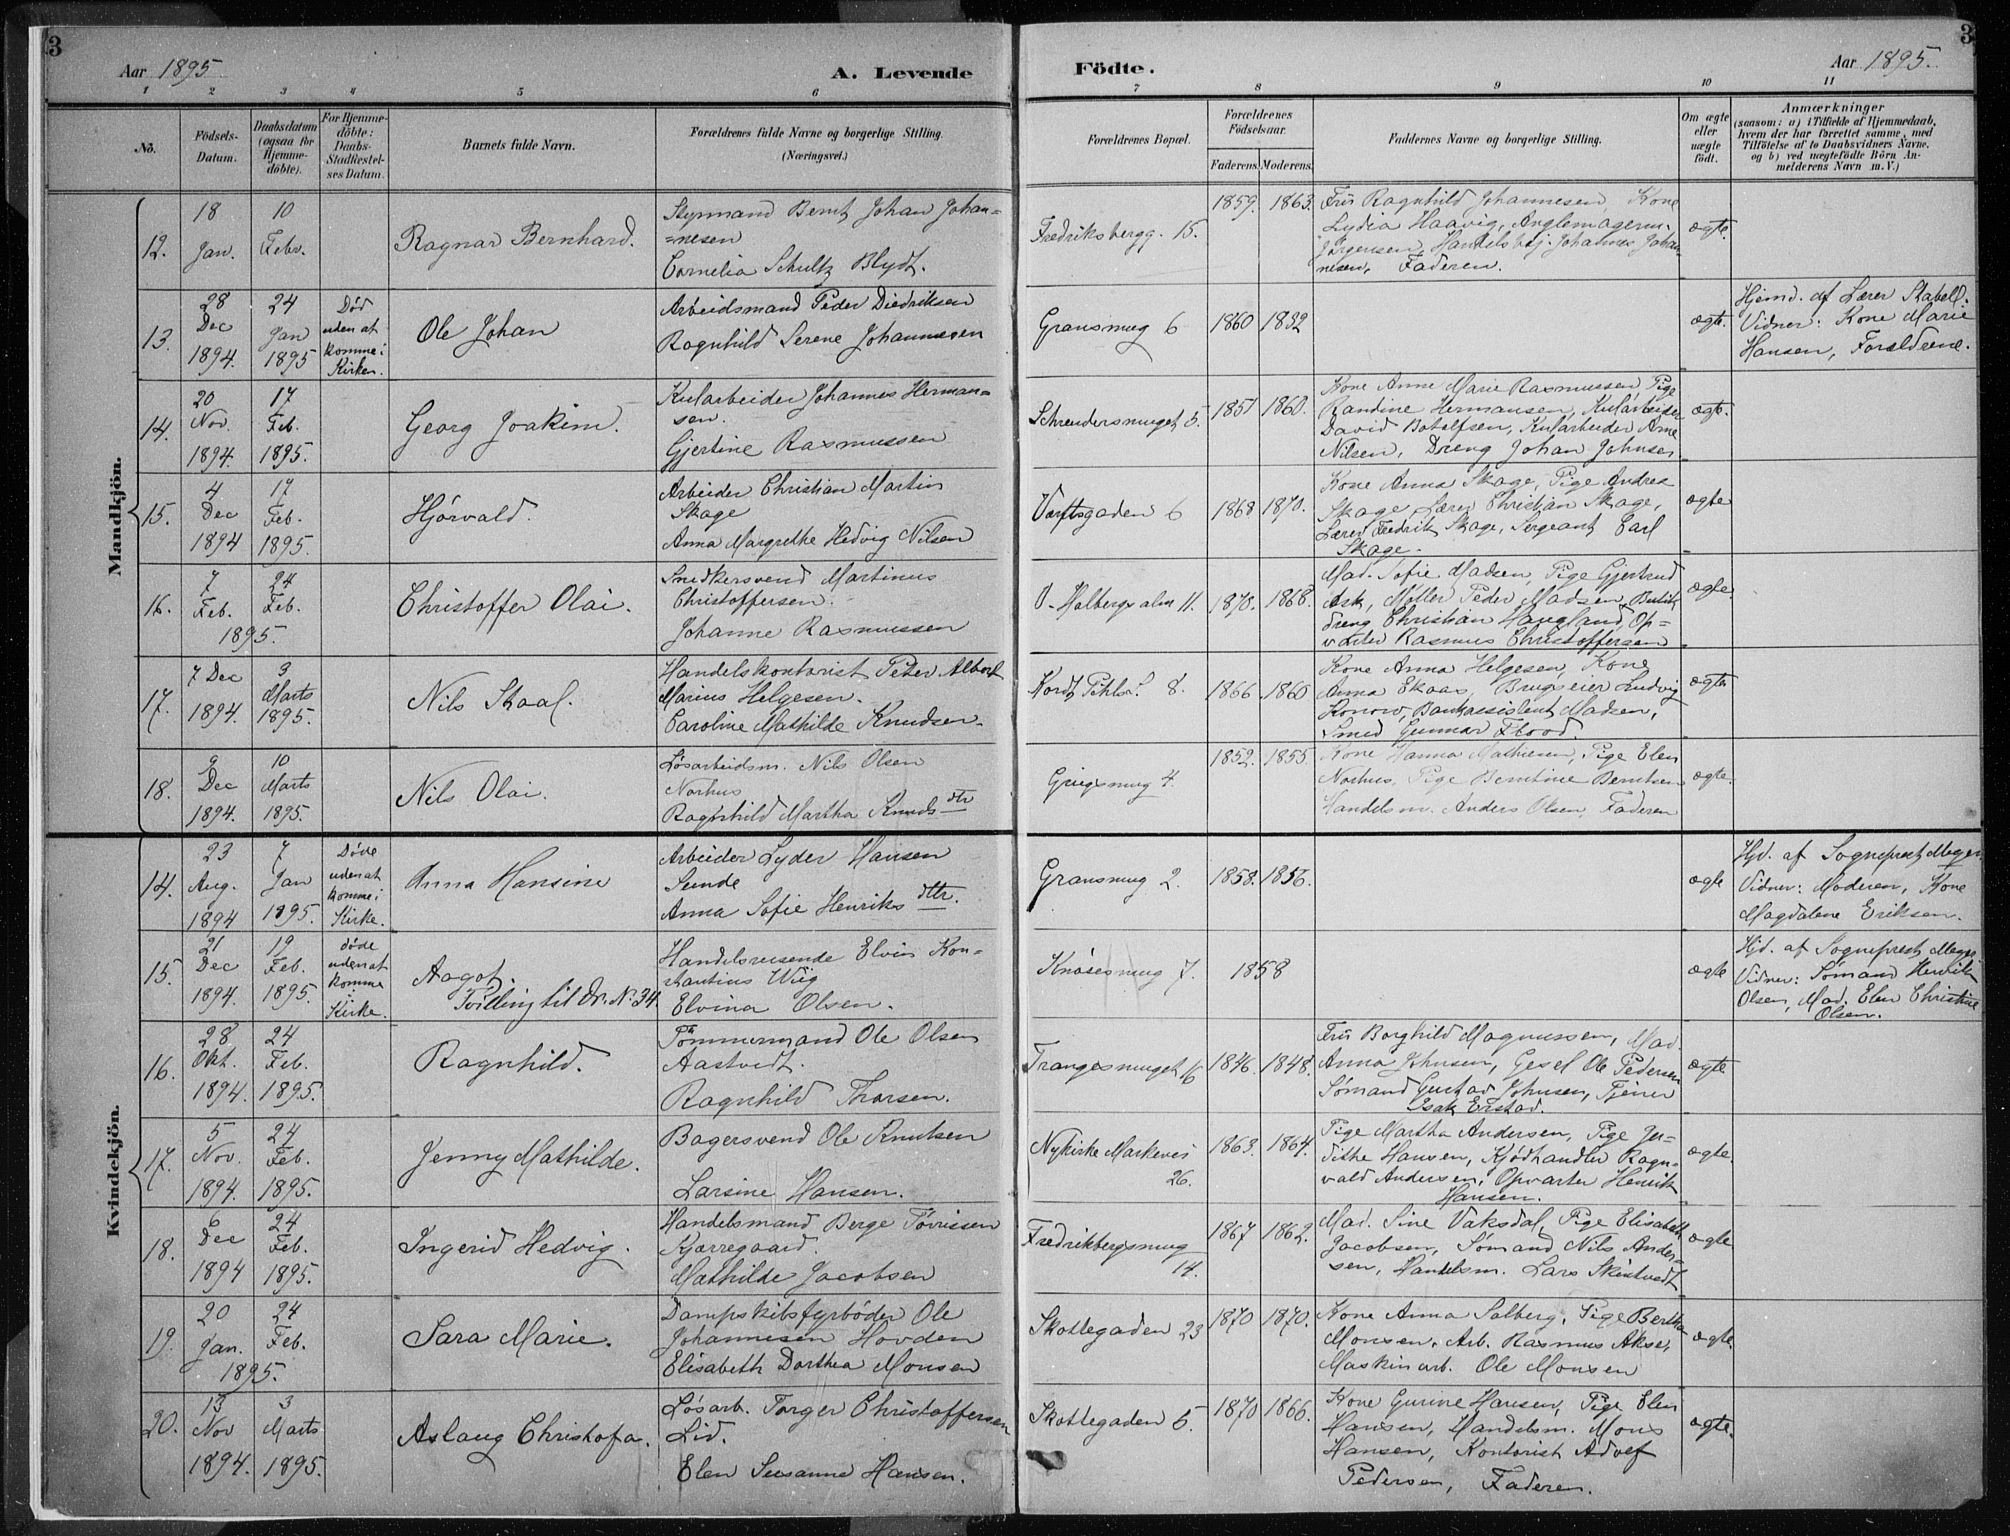 3
Aar 1895
A. Levende
1 2 3 4 5 6
No.
Födsels-Datum.
Daabsdatum (ogsaa for Hjemme-döbte).
For Hjemme-döbte: Daabs-Stadfæstel-ses Datum.
Barnets fulde Navn.
Forældrenes fulde Navne og borgerlige Stilling.
(Næringsvei.)
Mandkjön.
12.
18 Jan.
10 Febr.
Ragnar Bernhard.
Styrmand Bernt Johan Johan=
=nesen
Cornelia Schultz Blydt.
13.
28 Dec 1894.
24 Jan 1895
Død uden at komme i Kirken.
Ole Johan
Arbeidsmand Peder Diedriksen
Ragnhild Serene Johannesen
14.
20 Nov. 1894.
17 Feb. 1895.
Georg Joakim.
Kularbeider Johannes Herman=
sen.
Gjertine Rasmussen
15.
4 Dec 1894
17 Feb. 1895.
Hjørvald.
Arbeider Christian Martin
Skage
Anna Margrethe Hedvig Nilsen
16.
7 Feb.
24 Feb.
1895.
Christoffer Olai.
Snedkersvend Martinus
Christoffersen.
Johanne Rasmussen
17.
7 Dec 1894.
3 Marts 1895.
Nils Skaal.
Handelskontorist Peter Albert
Marius Helgesen.
Caroline Mathilde Knudsen.
18.
9 Dec 1894.
10 Marts 1895.
Nils Olai.
Løsarbeidsm. Nils Olsen
Norhus
Ragnhild Martha Knudsdtr
Kvindekjön.
14.
23 Aug. 1894
7 Jan 1895.
Døde uden at komme i Kirke.
Anna Hansine
Arbeider Lyder Hansen
Sunde
Anna Sofie Henriksdttr.
15.
21 Dec 1894.
19 Feb. 1895.
døde uden at komme i Kirke.
Aagot.
Tvilling til Dr. N. 34.
Handelsreisende Elvin Kon-
stantius Wiig
Elvina Olsen.
16.
28 Okt. 1894.
24 Feb. 1895.
Ragnhild.
Tömmermand Ole Olsen
Aastvedt.
Ragnhild Thorsen.
17.
5 Nov. 1894.
24 Feb. 1895.
Jenny Mathilde.
Bagersvend Ole Knutsen
Larsine Hansen.
18.
6 Dec 1894
24 Feb. 1895.
Ingerid Hedvig.
Handelsmand Berge Törrissen
Kjærregaard.
Mathilde Jacobsen
19.
20 Jan.
24 Feb.
1895.
Sara Marie.
Dampskibsfyrbøder Ole
Johannesen Hovden
Elisabeth Dorthea Monsen
20.
13 Nov 1894.
3 Marts 1895.
Aslaug Christofa.
Løsarb. Torger Christoffersen
Lid.
Elen Susanne Hansen.
3
Födte.
Aar 1895.
7 8 9 10 11
Forældrenes Bopæl.
Forældrenes Födselsaar.
Faderens. Moderens.
Faddernes Navne og borgerlige Stilling.
Om ægte eller uægte födt.
Anmærkninger
(saasom: a) i Tilfælde af Hjemmedaab,
hvem der har forrettet samme, med
Tilföielse af to Daabsvidners Navne,
og b) ved uægtefödte Börn An-
melderens Navn m. V.)
Fredriksbergg. 15.
1859. 1863.
Fru Ragnhild Johannesen Kone
Lydia Haavig,
Jörgensen, Handelsbetj. Johannes Johan-
nesen, Faderen.
ægte.
Gransmug 6
1860 1832
ægte.
Hjemd. af Lærer Stabell.
Vidner: Kone Marie
Hansen, Forældrene.
Schreudersmuget 5.
1851 1860.
Kone Anne Marie Rasmussen Pige
Randine Hermansen, Kularbeider
David Botolfsen, Kularbeider Arne
Nilsen, Dreng Johan Johnsen
ægte.
Værftsgaden 6
1868 1870.
Kone Anna Skage, Pige Andrea
Skage, Lærer Christian Skage,
Lærer Fredrik Skage, Sergeant Carl
Skage.
ægte
O. Holbergs alm 11.
1870. 1868.
Mad. Sofie Madsen, Pige Gjertrud
Ask, Møller Peder Madsen, Butik
dreng Christian Haugland, Op=
varter Rasmus Christoffersen
ægte.
Kordt Pihls. 8.
1866. 1860
Kone Anna Helgesen, Kone
Anna Ekaas, Brugseier Ludvig
Konow, Bankassistent Madsen,
Smed Gunnar Flood
ægte
Griegsmug 4.
1852. 1855.
Kone Hanna Mathiesen, Pige Elen
Norhus, Pige Berntine Berntsen
Handelsm. Anders Olsen, Faderen
ægte.
Gransmug 2.
1858. 1856.
ægte
Hjd. af Sogneprest Meyer
Vidner: Moderen, Kone
Magdalene Eriksen.
Knøsesmug 7.
1858
ægte
Hjd. af Sogneprest Meyer
Vidner: Sømand Henrik
Olsen, Mad. Elen Christine
Olsen.
Trangesmuget 16
1846. 1848.
Fru Borghild Magnussen, Mad.
Anna Johnsen, Gesel Ole Pedersen
Sømand Gustav Johnsen, Tjener
Isak Erstad.
ægte
Nykirke Markevei
26.
1863. 1864.
Pige Martha Andersen, Pige Ju=
ditha Hansen, Kjødhandler Ragn-
vald Andersen, Opvarter Henrik
Hansen.
ægte.
Fredrikbergsmug
14.
1867 1862.
Mad. Sine Vaksdal, Pige Elisabeth
Jacobsen, Sømand Nils Ander-
sen, Handelsm. Lars Skintvedt
ægte
Skottegaden 23
1870 1870.
Kone Anna Solberg, Pige Bertha
Monsen, Arb. Rasmus Akse,
Maskinarb. Ole Monsen
ægte.
Skottegaden 5.
1870 1866.
Kone Gurine Hansen, Pige Elen
Hansen, Handelsm. Mons
Hansen, Kontorist Adolf
Pedersen, Faderen.
ægte.